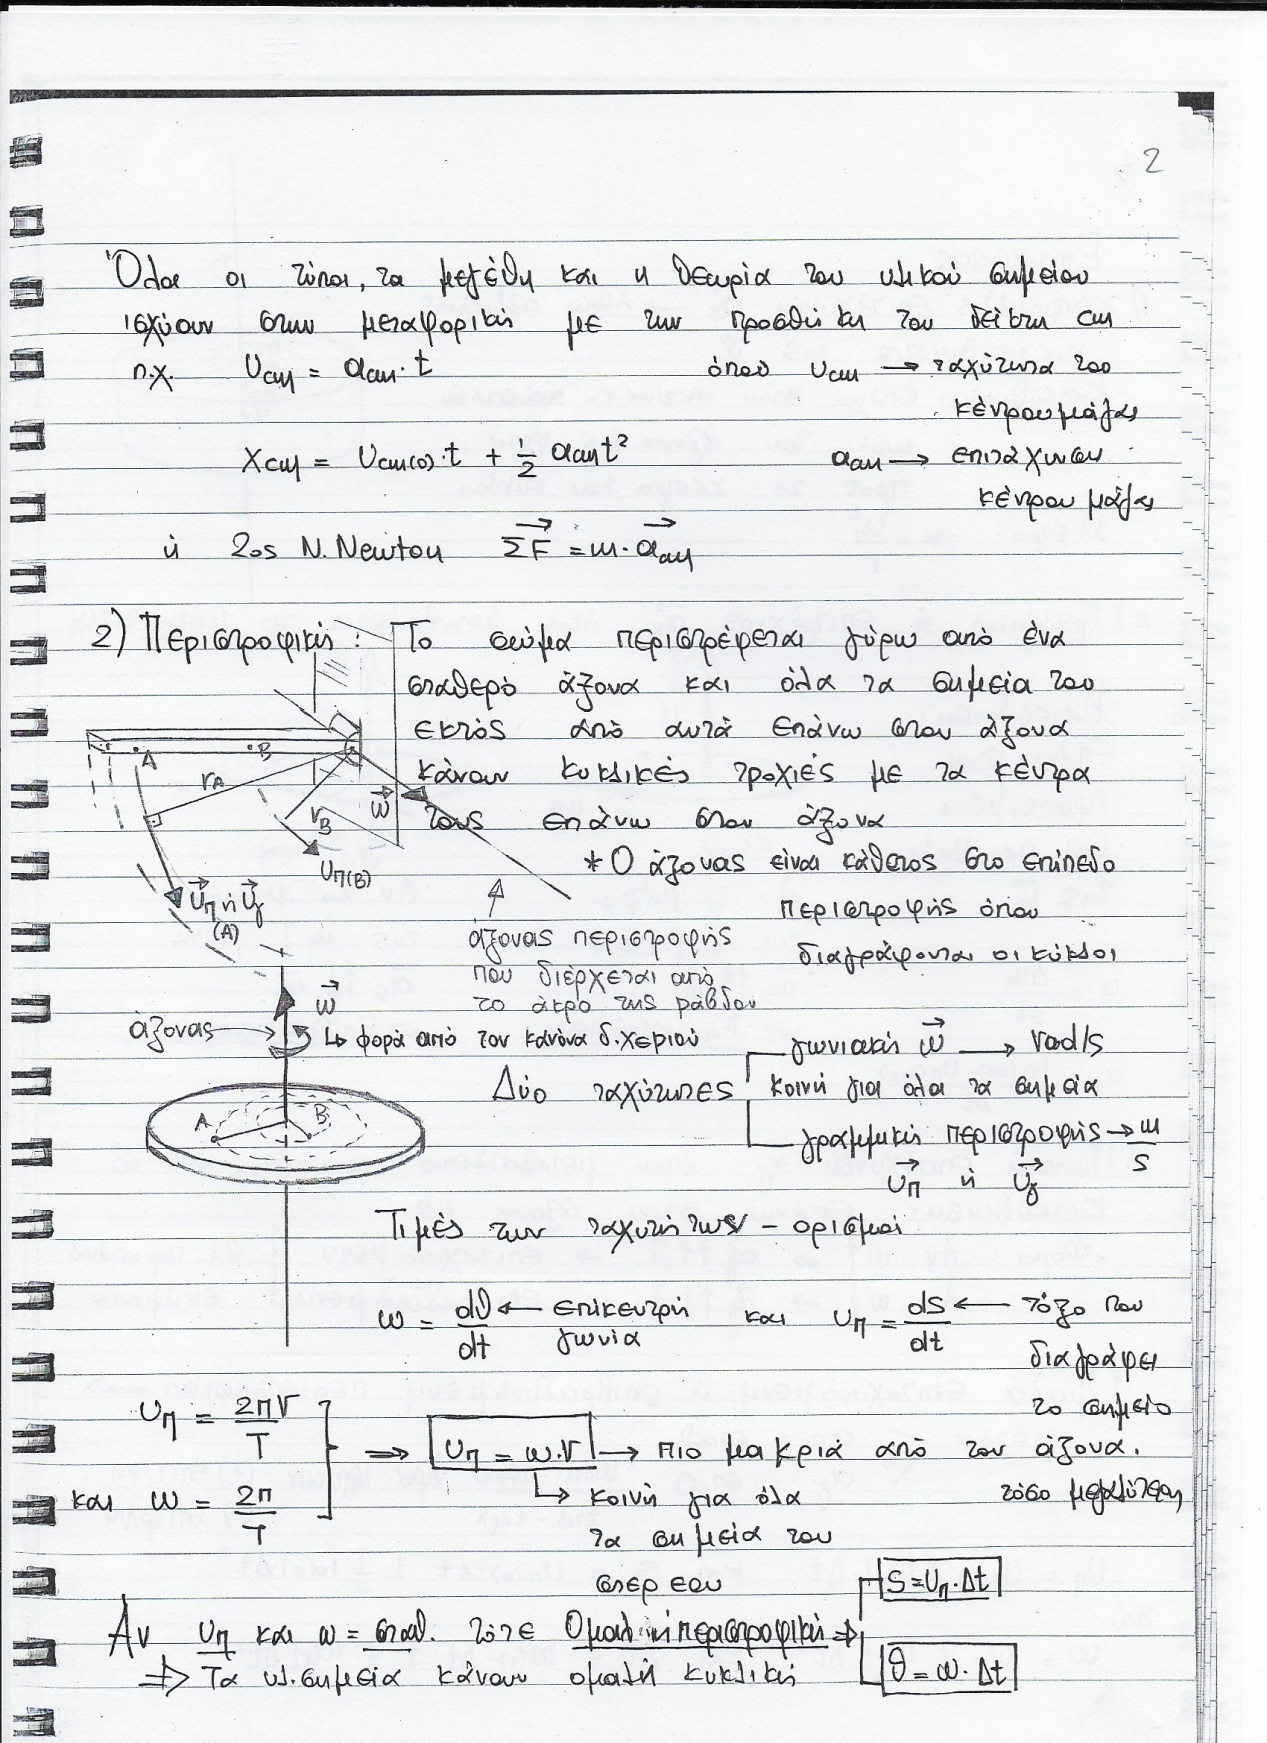 2
Όλοι οι τύποι, τα μεγέθη και η θεωρία του υλικού σημείου
ισχύουν στην μεταφορική με την προσθήκη του δείκτη cm
π.χ. υcm = αcm · t όπου υcm → ταχύτητα του
κέντρου μάζας
Xcm = υcm(0) · t + 1/2 αcm t² αcm → επιτάχυνση
κέντρου μάζας
ή 2ος Ν. Newton ΣF = m · αcm
2) Περιστροφική : Το σώμα περιστρέφεται γύρω από ένα
σταθερό άξονα και όλα τα σημεία του
εκτός από αυτά επάνω στον άξονα
κάνουν κυκλικές τροχιές με τα κέντρα
τους επάνω στον άξονα
A B
rA rB ω
* Ο άξονας είναι κάθετος στο επίπεδο
περιστροφής όπου
διαγράφονται οι κύκλοι
υπ(B)
υπ ή υγ
(A)
άξονας περιστροφής
που διέρχεται από
το άκρο της ράβδου
ω
άξονας ↳ φορά από τον κανόνα δ.χεριού
Δύο ταχύτητες
γωνιακή ω → rad/s
κοινή για όλα τα σημεία
γραμμική περιστροφής → m/s
υπ ή υγ
A B
Τιμές των ταχυτήτων - ορισμοί
ω = dθ/dt ← επίκεντρη γωνία και υπ = dS/dt ← τόξο που
διαγράφει
το σημείο
υπ = 2πr/T
και ω = 2π/T
⇒ υπ = ω·r → πιο μακριά από τον άξονα.
τόσο μεγαλύτερη
↳ κοινή για όλα
τα σημεία του
στερεού
Αν υπ και ω = σταθ. τότε Ομαλή περιστροφική ⇒
S = υπ · Δt
θ = ω · Δt
⇒ Τα υλ. σημεία κάνουν ομαλή κυκλική